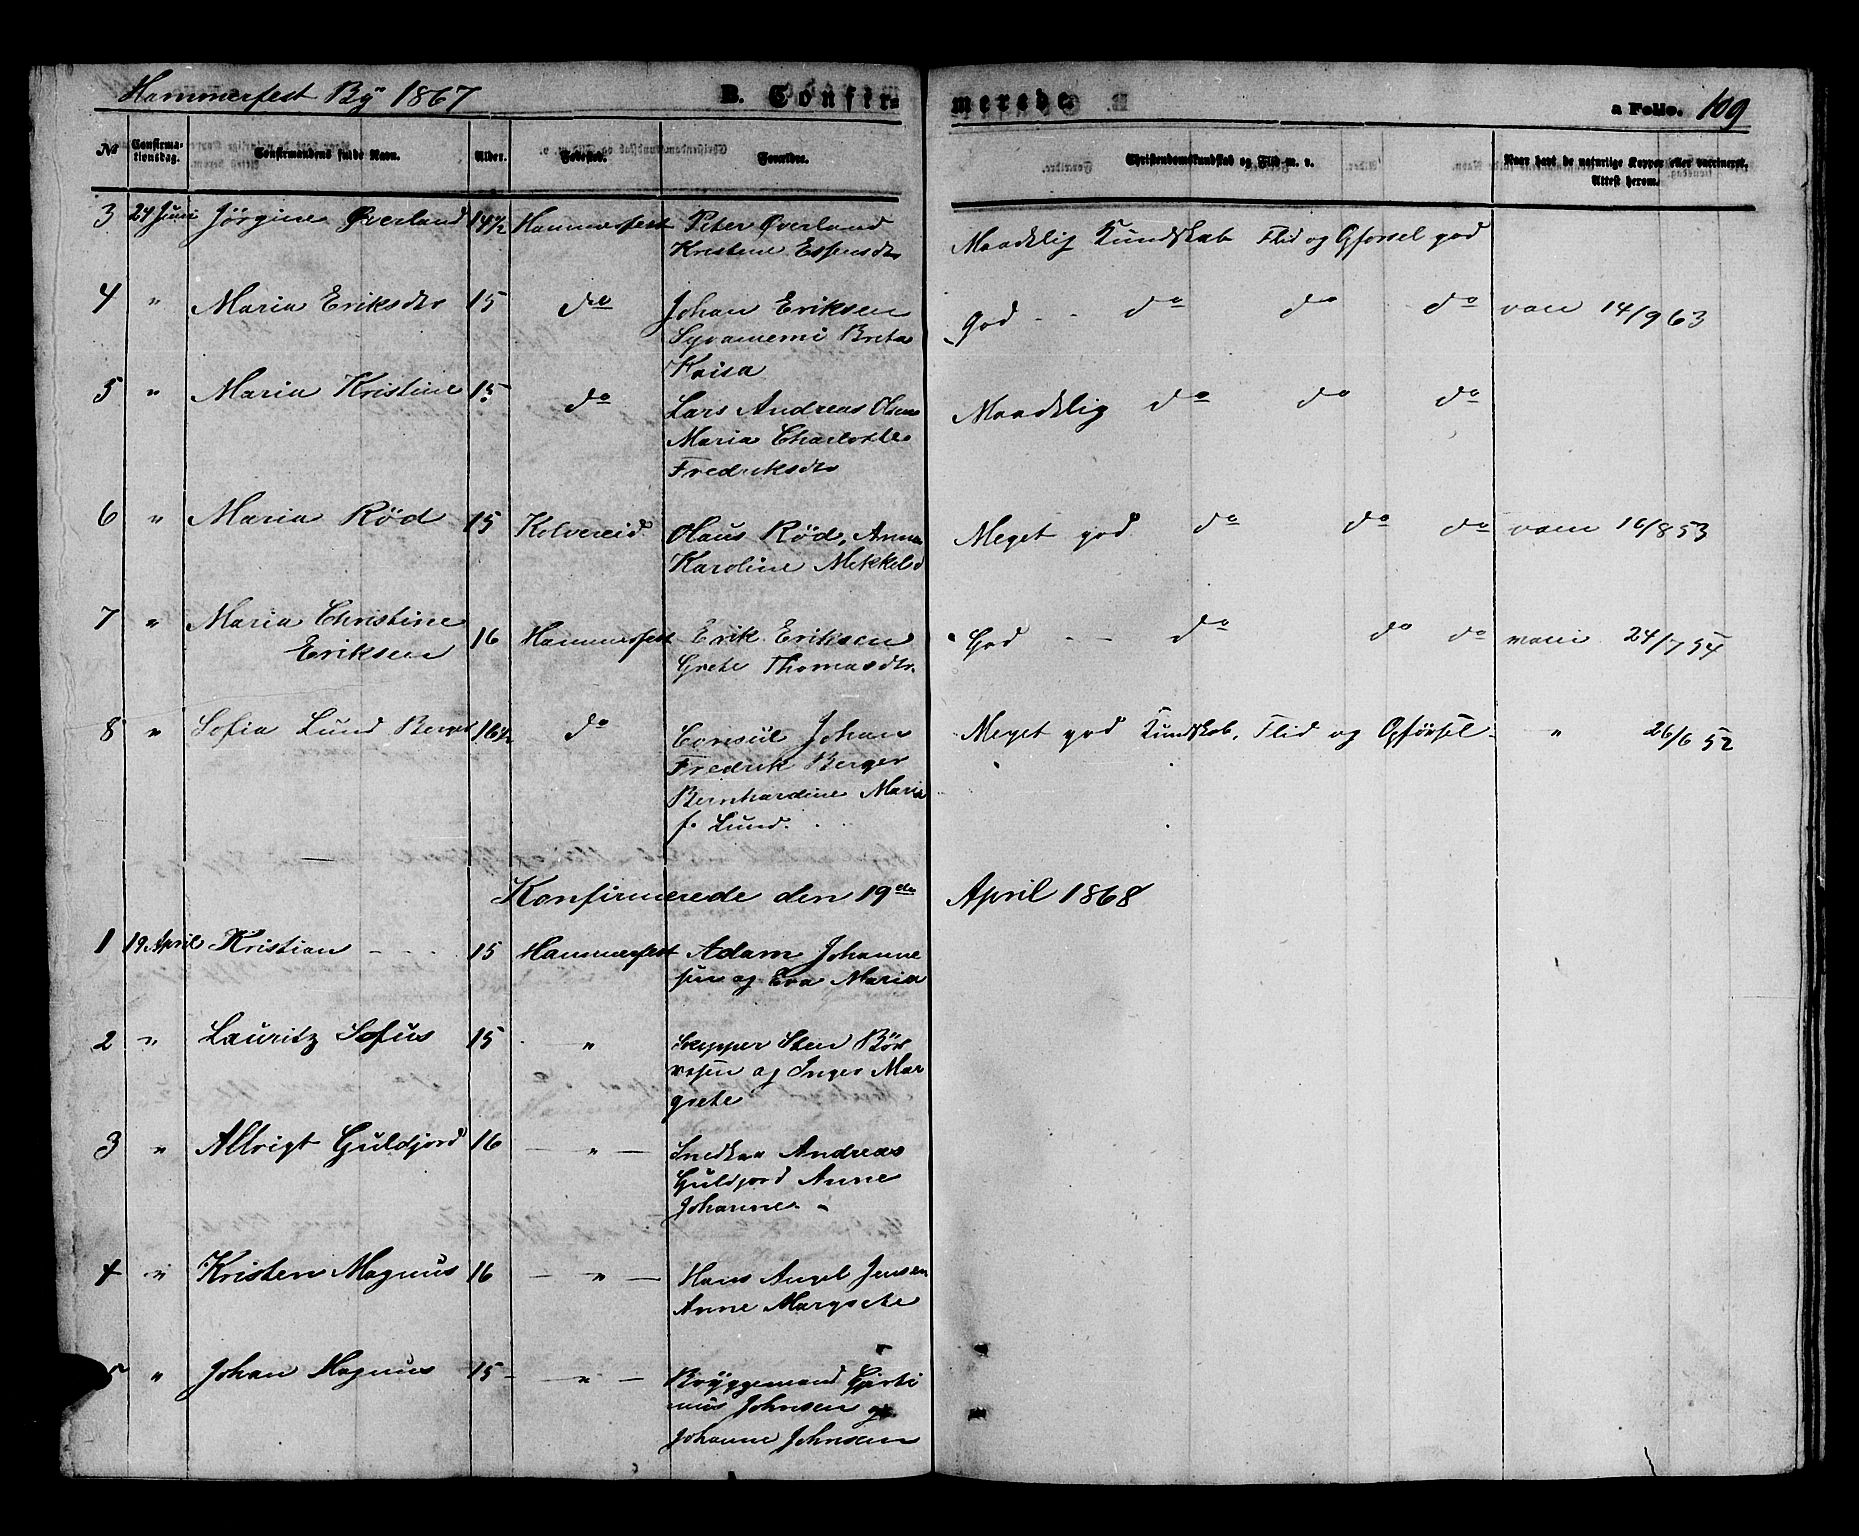 Hammerfest By 1867 B. Confir- merede. a Folio. 109
No Confirma-tionsdag. Confirmandens fulde Navn. Alder. Fødested. Forældre. Christendomskundskab og Flid m. v. Naar havt de naturlige Kopper eller vaccineret. Attest herom.
3 24 Juni Jörgine Øverland 14 1/2 Hammerfest Peter Øverland
Kristine Espensdtr Maadelig Kundskab Flid og Opförsel god
4 " Maria Eriksdtr 15 do Johan Eriksen God - - do do do vacc 14/9 63
Brita
Kaisa
5 " Maria Kristine 15 do Lars Andreas Olsen Maadelig do do do
Maria Charlotte
Fredriksdtr
6 " Maria Röd 15 Kolvereid Olaus Röd, Anna Meget god do do do vacc 10/8 53
Karoline Mekkelsd
7 " Maria Christine
Eriksen 16 Hammerfest Erik Eriksen God - - do do do vacc 24/7 54
Grete Thomasdtr.
8 " Sofia Lund Berger 16 1/2 do Consul Johan Meget god Kundskab, Flid og Opförsel - " 26/6 52
Fredrik Berger
Bernhardine Maria
f. Lund.
Konfirmerede den 19de April 1868
1 19. April Kristian - - - 15 Hammerfest Adam Johanne
sen og Eva Maria
2 " Lauritz Sofus 15 " Skipper Sten
og Inger Mar
grete
3 " Allrigt Guldjord 16 - " - Snedker Andreas
Guldjord Anne
Johanne -
4 " Kristen Magnus 16 - " - Hans Angel Jensen
Anne Margrete
5 " Johan Magnus 15 - " - Bryggemand
Johnsen og
Johanne Johnsen